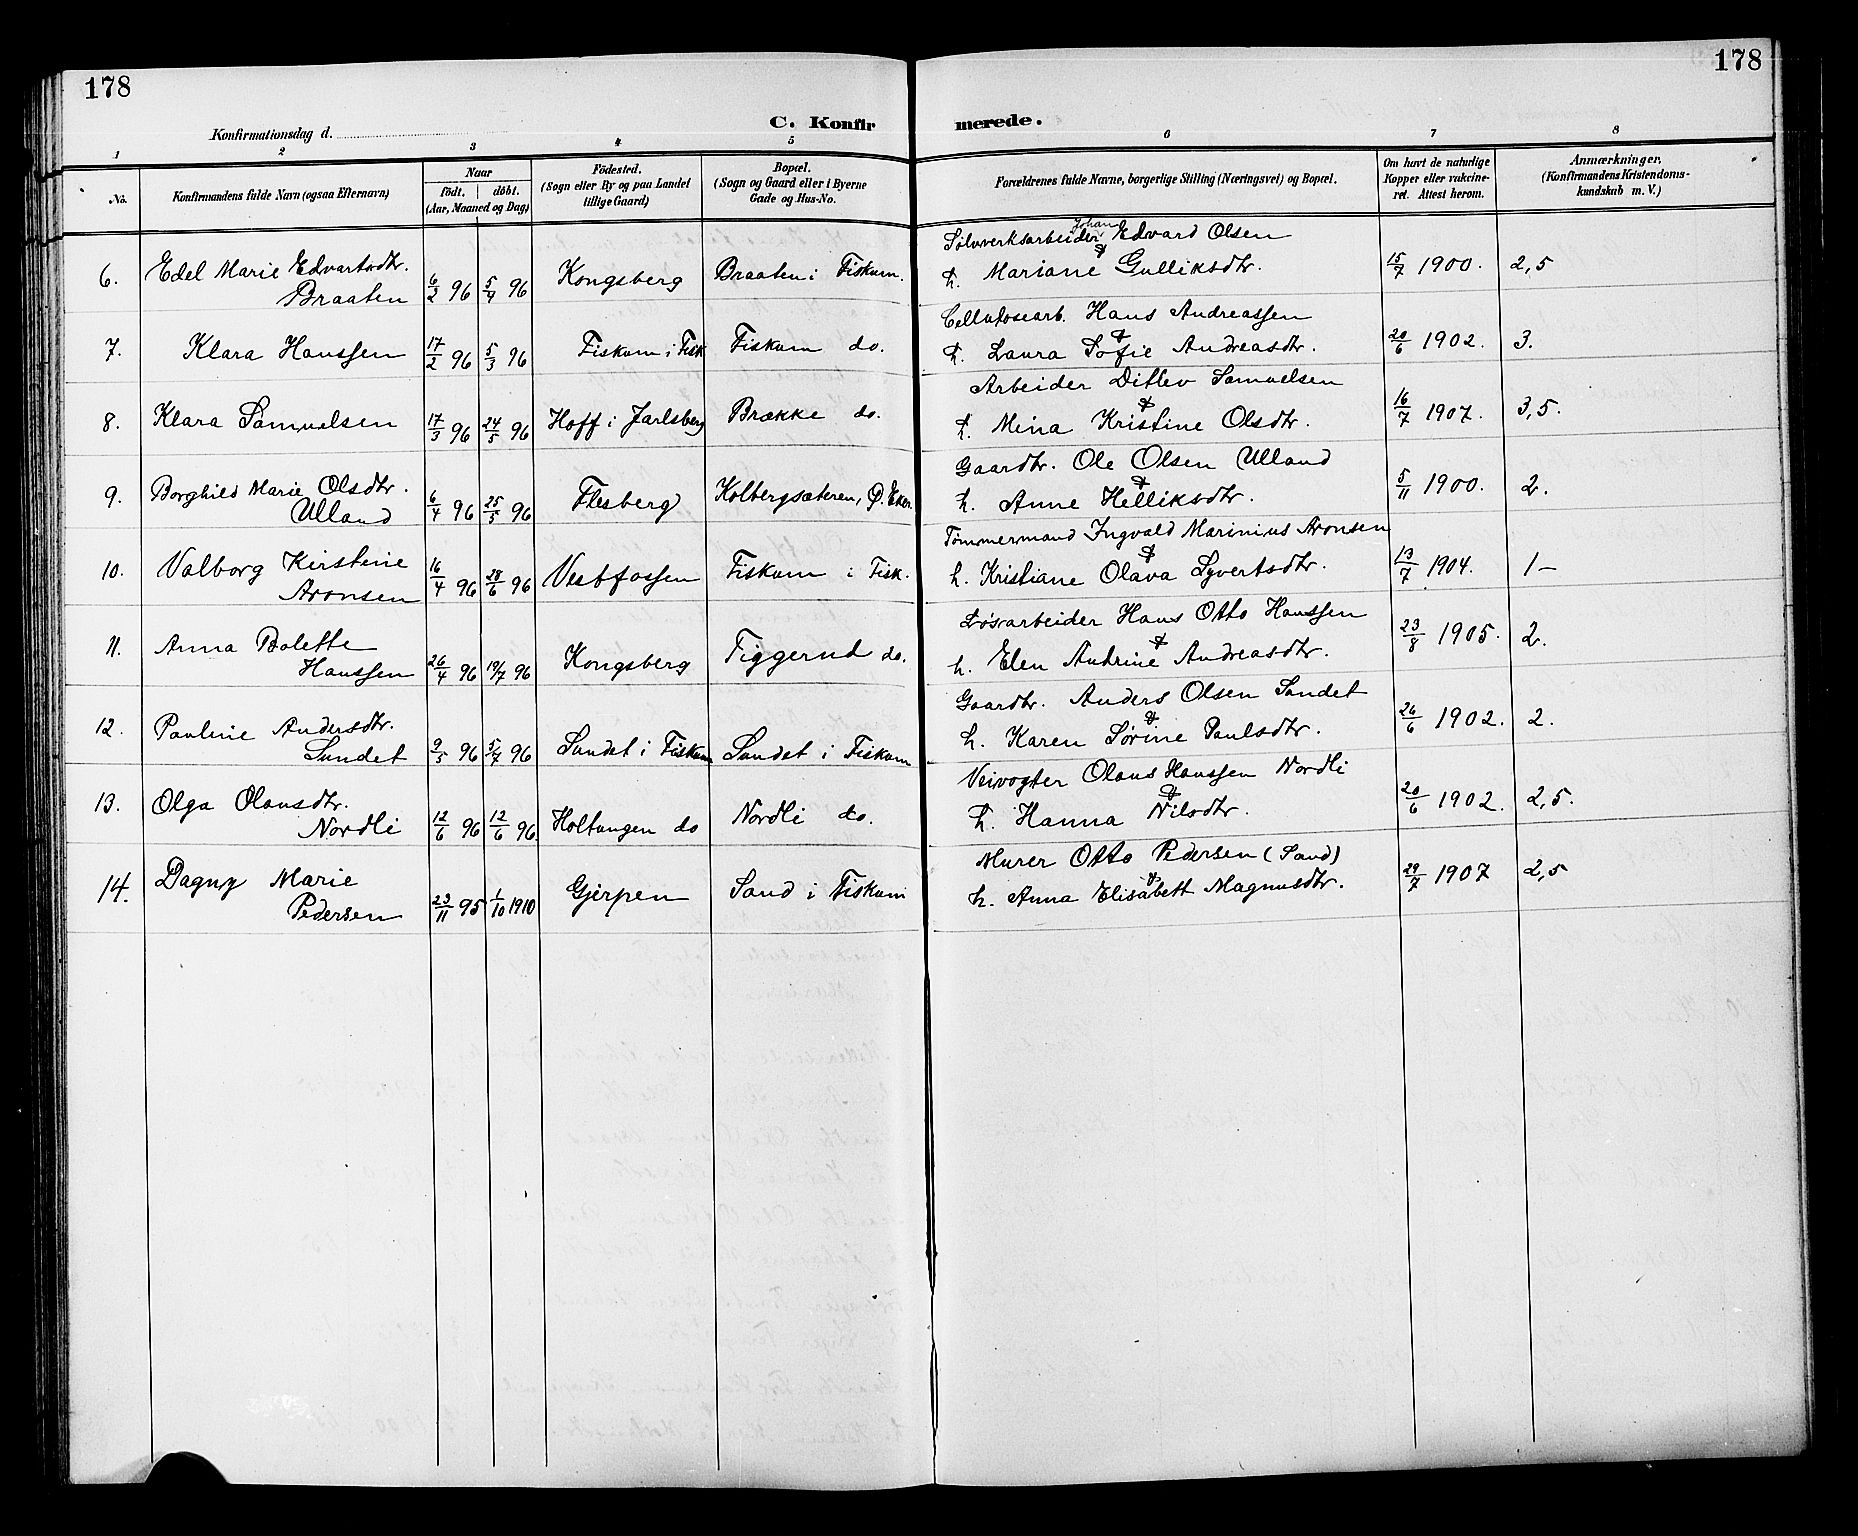 178
178
Konfirmationsdag d.
C. Konfir
merede.
1 2 3 4 5 6 7 8
No.
Konfirmandens fulde Navn (ogsaa Efternavn)
Naar
født. døbt.
(Aar, Maaned og Dag)
Födested.
(Sogn eller By og paa Landet
tillige Gaard)
Bopæl.
(Sogn og Gaard eller i Byerne
Gade og Hus-No.
Forældrenes fulde Navne, borgerlige Stilling (Næringsvei) og Bopæl.
Om havt de naturlige
Kopper eller vakcine-
ret. Attest herom.
Anmærkninger.
(Konfirmandens Kristendoms-
kundskab m. V.)
Johan
Sølvverksarbeider Edvard Olsen
6. Edel Marie Edvartsdtr. Braaten 6/2 96 5/4 96 Kongsberg Braaten i Fiskum. & h. Mariane Gulliksdtr. 15/7 1900. 2,5
Cellulosearb. Hans Andreassen
7. Klara Hanssen 17/2 96 5/3 96 Fiskum i Fisk Fiskum do. & h. Laura Sofie Andreasdtr. 20/6 1902. 3.
Arbeider Ditlev Samuelsen
8. Klara Samuelsen 17/3 96 24/5 96 Hoff i Jarlsberg Brække do. & h. Mina Kristine Olsdtr. 16/7 1907. 3,5.
Gaardbr. Ole Olsen Ulland
9. Borghild Marie Olsdtr. Ulland 6/4 96 25/5 96 Flesberg Kolbergsæteren, Ø. Eker. & h. Anne Helliksdtr. 5/11 1900. 2.
Tømmermand Ingvald Marinius Aronsen
10. Valborg Kirstine Aronsen 16/4 96 28/6 96 Vestfossen Fiskum i Fisk. & h. Kristiane Olava Syvertsdtr. 13/7 1904. 1-
Løsarbeider Hans Otto Hanssen
11. Anna Bolette Hanssen 26/4 96 19/7 96 Kongsberg Figgerud do. & h. Elen Andrine Andreasdtr. 23/8 1905. 2.
Gaardbr. Anders Olsen Sandet
12. Pauline Andersdtr. Sandet 9/5 96 5/7 96 Sandet i Fiskum Sandet i Fiskum & h. Karen Sørine Paulsdtr. 26/6 1902. 2.
Veivogter Olaus Hanssen Nordli
13. Olga Olausdtr. Nordli 12/6 96 12/6 96. Holtungen do Nordli do. & h. Hanna Nilsdtr. 20/6 1902. 2,5.
Murer Otto Pedersen (Sand)
14. Dagny Marie Pedersen 23/11 95 1/10 1910 Gjerpen Sand i Fiskum & h. Anna Elisabett Magnusdtr. 29/7 1907 2,5